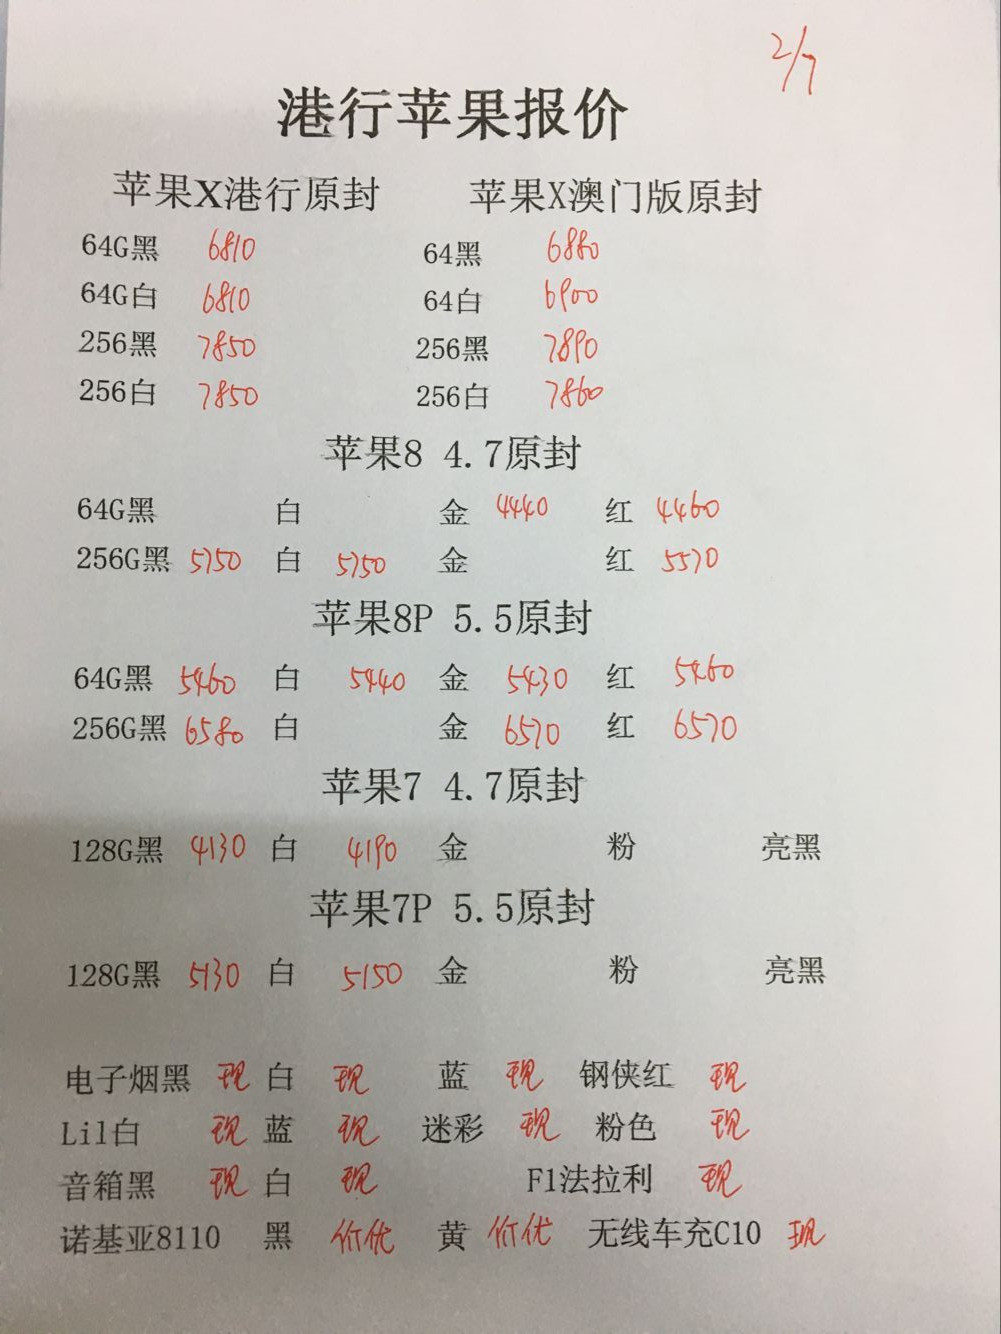 2/7
港行苹果报价
苹果X港行原封 苹果X澳门版原封
64G黑 6810 64黑 6880
64G白 6810 64白 6900
256黑 7850 256黑 7890
256白 7850 256白 7860
苹果8 4.7原封
64G黑 白 金 4440 红 4460
256G黑 5750 白 5750 金 红 5570
苹果8P 5.5原封
64G黑 5460 白 5440 金 5430 红 5460
256G黑 6580 白 金 6570 红 6570
苹果7 4.7原封
128G黑 4130 白 4190 金 粉 亮黑
苹果7P 5.5原封
128G黑 5130 白 5150 金 粉 亮黑
电子烟黑 现 白 现 蓝 现 钢侠红 现
Lil白 现 蓝 现 迷彩 现 粉色 现
音箱黑 现 白 现 F1法拉利 现
诺基亚8110 黑 价优 黄 价优 无线车充C10 现